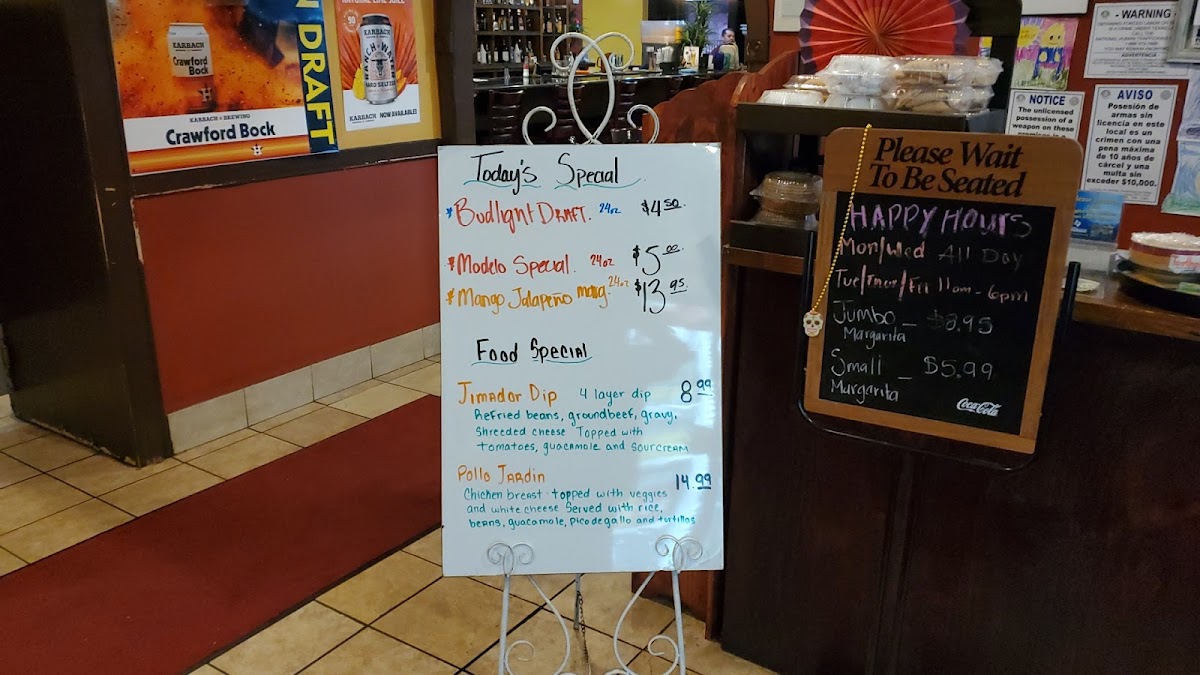 KARBACH
Crawford
Bock
KARBACH BREWING
Crawford Bock
N DRAFT
NATURAL LIME JUICE
90
KARBACH
RANCH WATER
HARD SELTZER
KARBACH NOW AVAILABLE!
Today's Special
*Budlight DRAFT. 24oz $4 50
*Modelo Special. 24oz $5 00
*Mango Jalapeño marg. 24oz $13 95
Food Special
Jimador Dip 4 layer dip 8 99
Refried beans, groundbeef, gravy,
Shreeded cheese Topped with
tomatoes, guacamole and sourcream
Pollo Jardin 14.99
Chicken breast topped with veggies
and white cheese Served with rice,
beans, guacamole, picodegallo and tortillas
Please Wait
To Be Seated
HAPPY HOURS
Mon/Wed All Day
Tue/Thur/Fri 11am-6pm
Jumbo - $8.95
Margarita
Small - $5.99
Margarita
Coca-Cola
- WARNING
ADVERTENCIA
NOTICE
The unlicensed
possession of a
weapon on these
AVISO
Posesión de
armas sin
licencia en este
local es un
crimen con una
pena máxima
de 10 años de
cárcel y una
multa sin
exceder $10,000.